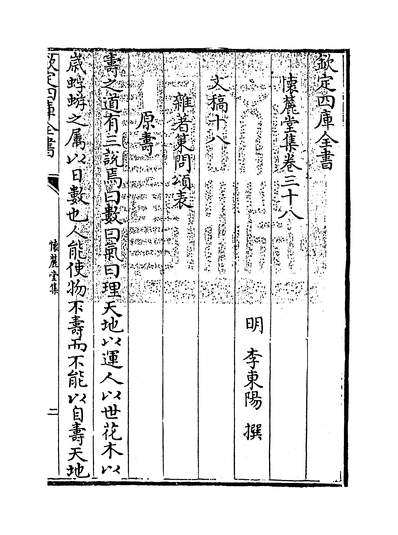 欽定四庫全書
懷麓堂集卷三十八
明 李東陽 撰
文稿十八
雜著策問頌表
原壽
壽之道有三說焉曰數曰氣曰理天地以運人以世花木以
歳蜉蝣之属以日數也人能使物不壽而不能以自壽天地
欽定四庫全書
懷麓堂集